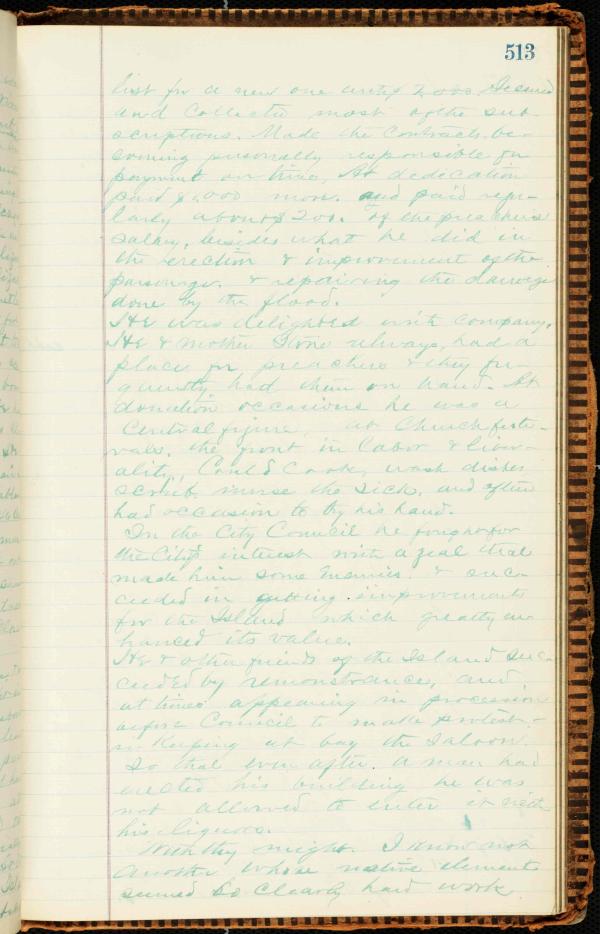 513
list for a new one with $2,000 Secured
and Collected most of the sub-
scriptions. Made the Contracts, be-
coming personally responsible for
payment on time, At dedication
paid $1,000 more. and paid regu-
larly about $200. of the preachers
salary, besides what he did in
the erection & improvement of the
parsonage. & repairing the damage
done by the flood.
He was delighted with company.
He & mother Stone always, had a
place for preachers & they fre-
quently had them on hand. At
donation occasions he was a
Central figure, at Church festi-
vals, the front in Labor & liber-
ality, Could Cook, wash dishes
scrub, nurse the sick, and often
had occasion to try his hand.
In the City Council he fought for
the City's interest with a zeal that
made him some enemies. & suc-
ceeded in getting improvements
for the Island which greatly en-
hanced its value.
He & other friends of the Island suc-
ceeded by remonstrance, and,
at times appearing in procession
before Council to make protest,
in Keeping at bay the Saloon.
So that even after. a man had
erected his building he was
not allowed to enter it with
his liquors.
With thy might. I know not
another whose native element
seemed so clearly hard work